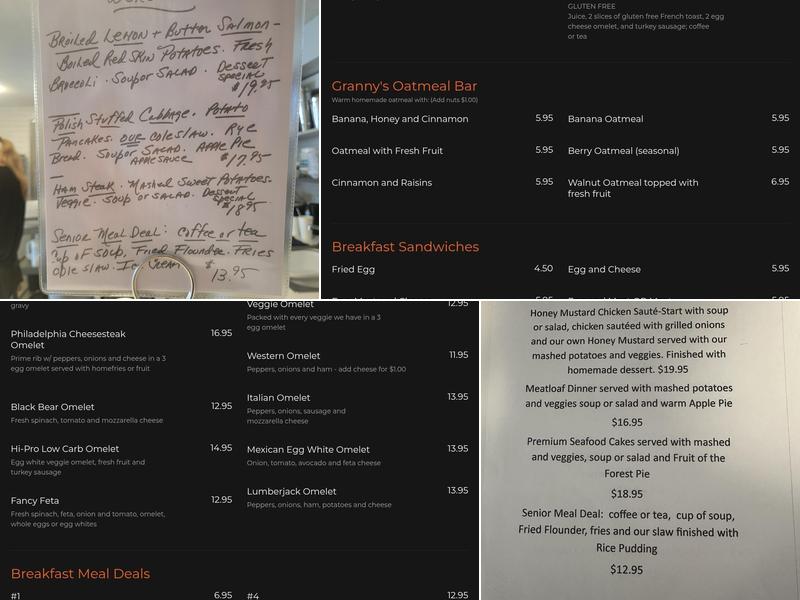 Broiled Lemon + Butter Salmon -
Boiled Red Skin Potatoes. Fresh
Broccoli. Soup or Salad. Dessert
Special
$19.95
Polish Stuffed Cabbage. Potato
Pancakes. our coleslaw. Rye
Bread. Soup or Salad. Apple Pie
Applesauce $17.95
Ham Steak. Mashed Sweet Potatoes.
Veggie. Soup or Salad. Dessert
Special
$18.95
Senior Meal Deal: coffee or tea
Cup of Soup, Fried Flounder. Fries
cole slaw. Ice Cream $13.95
GLUTEN FREE
Juice, 2 slices of gluten free French toast, 2 egg
cheese omelet, and turkey sausage; coffee
or tea
Granny's Oatmeal Bar
Warm homemade oatmeal with: (Add nuts $1.00)
Banana, Honey and Cinnamon 5.95 Banana Oatmeal 5.95
Oatmeal with Fresh Fruit 5.95 Berry Oatmeal (seasonal) 5.95
Cinnamon and Raisins 5.95 Walnut Oatmeal topped with 6.95
fresh fruit
Breakfast Sandwiches
Fried Egg 4.50 Egg and Cheese 5.95
gravy
Philadelphia Cheesesteak 16.95
Omelet
Prime rib w/ peppers, onions and cheese in a 3
egg omelet served with homefries or fruit
Black Bear Omelet 12.95
Fresh spinach, tomato and mozzarella cheese
Hi-Pro Low Carb Omelet 14.95
Egg white veggie omelet, fresh fruit and
turkey sausage
Fancy Feta 12.95
Fresh spinach, feta, onion and tomato, omelet,
whole eggs or egg whites
Veggie Omelet 12.95
Packed with every veggie we have in a 3
egg omelet
Western Omelet 11.95
Peppers, onions and ham - add cheese for $1.00
Italian Omelet 13.95
Peppers, onions, sausage and
mozzarella cheese
Mexican Egg White Omelet 13.95
Onion, tomato, avocado and feta cheese
Lumberjack Omelet 13.95
Peppers, onions, ham, potatoes and cheese
Breakfast Meal Deals
#1 6.95 #4 12.95
Honey Mustard Chicken Sauté-Start with soup
or salad, chicken sautéed with grilled onions
and our own Honey Mustard served with our
mashed potatoes and veggies. Finished with
homemade dessert. $19.95
Meatloaf Dinner served with mashed potatoes
and veggies soup or salad and warm Apple Pie
$16.95
Premium Seafood Cakes served with mashed
and veggies, soup or salad and Fruit of the
Forest Pie
$18.95
Senior Meal Deal: coffee or tea, cup of soup,
Fried Flounder, fries and our slaw finished with
Rice Pudding
$12.95